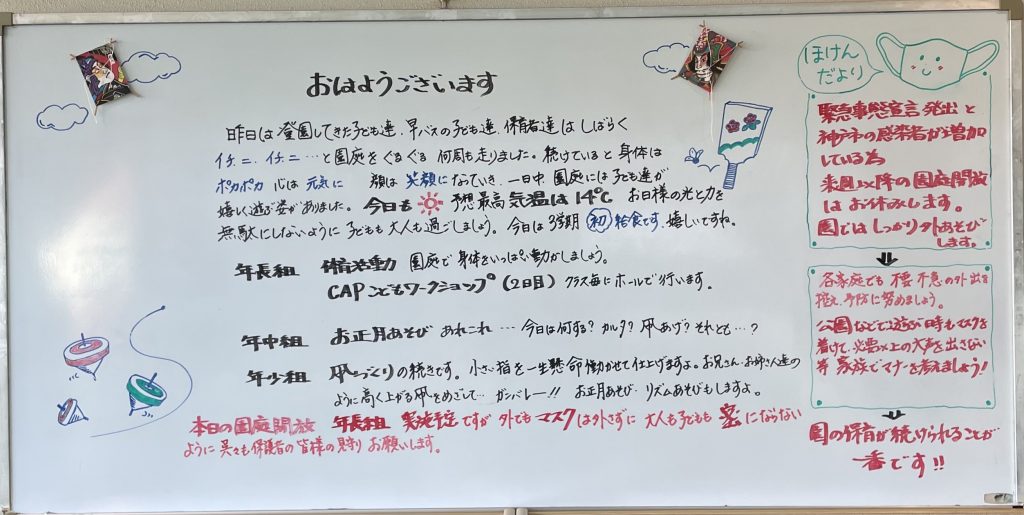 おはようございます
昨日は登園してきた子ども達、早バスの子ども達、保育者達はしばらく
イチ、ニ、イチ、ニ…と園庭をぐるぐる何周も走りました。続けていると身体は
ポカポカ 心は元気に 顔は笑顔になっていき、一日中園庭には子ども達が
嬉しく遊ぶ姿がありました。今日も 予想最高気温は14℃ お日様の光と力を
無駄にしないように子どもも大人も過ごしましょう。今日は3学期 初 給食です。嬉しいですね。
年長組 体育活動 園庭で身体をいっぱい動かしましょう。
CAPこどもワークショップ(2日目) クラス毎にホールで行います。
年中組 お正月あそび あれこれ…今日は何する?カルタ?凧あげ?それとも…?
年少組 凧づくりの続きです。小さい指を一生懸命動かせて仕上げますよ。お兄さん、お姉さん達の
ように高く上がる凧をめざして…ガンバレー!! お正月あそび、リズムあそびもしますよ。
本日の園庭開放 年長組 実施予定ですが 外でもマスクは外さずに 大人も子どもも密にならない
ように 呉々も保護者の皆様の見守りお願いします。
ほけん
だより
緊急事態宣言発出と
神戸市の感染者が増加
している為
来週以降の園庭開放
はお休みします。
園ではしっかり外あそび
します。
各家庭でも不要不急の外出を
控え、予防に努めましょう。
公園などで遊ぶ時もマスクを
着けて、必要以上の大声を出さない
等 家族でマナーを考えましょう!
園の保育が続けられることが
一番です!!